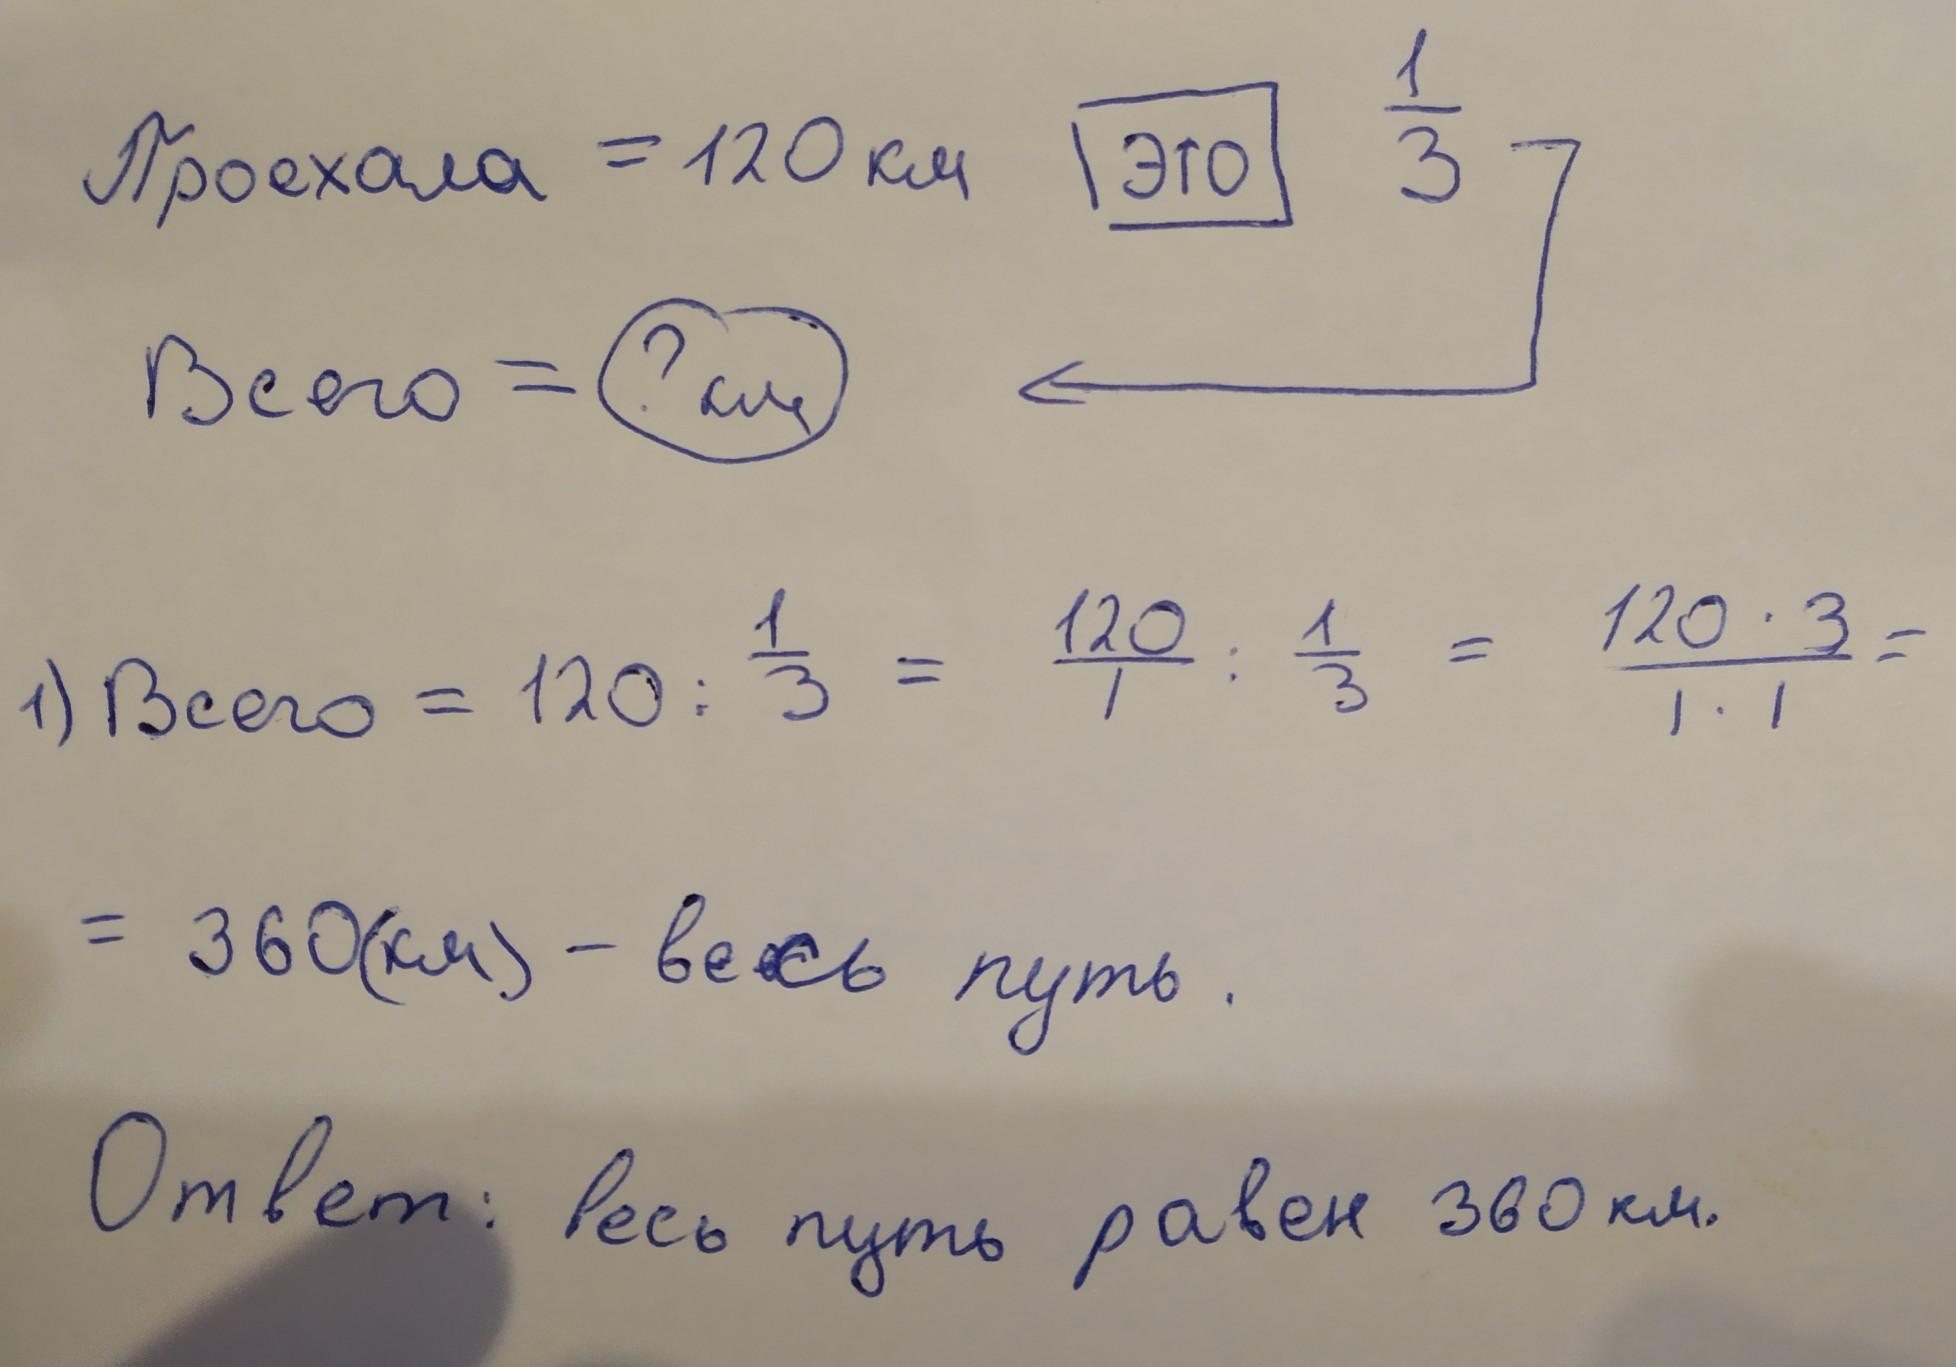 Проехала = 120 км это 1/3
Всего = ? км
1) Всего = 120 : 1/3 = 120/1 : 1/3 = 120 · 3/1 · 1 =
= 360 (км) – весь путь.
Ответ: весь путь равен 360 км.